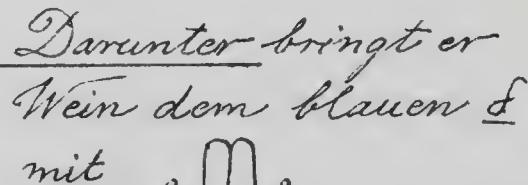 Darunter bringt er
Wein dem blauen
mit